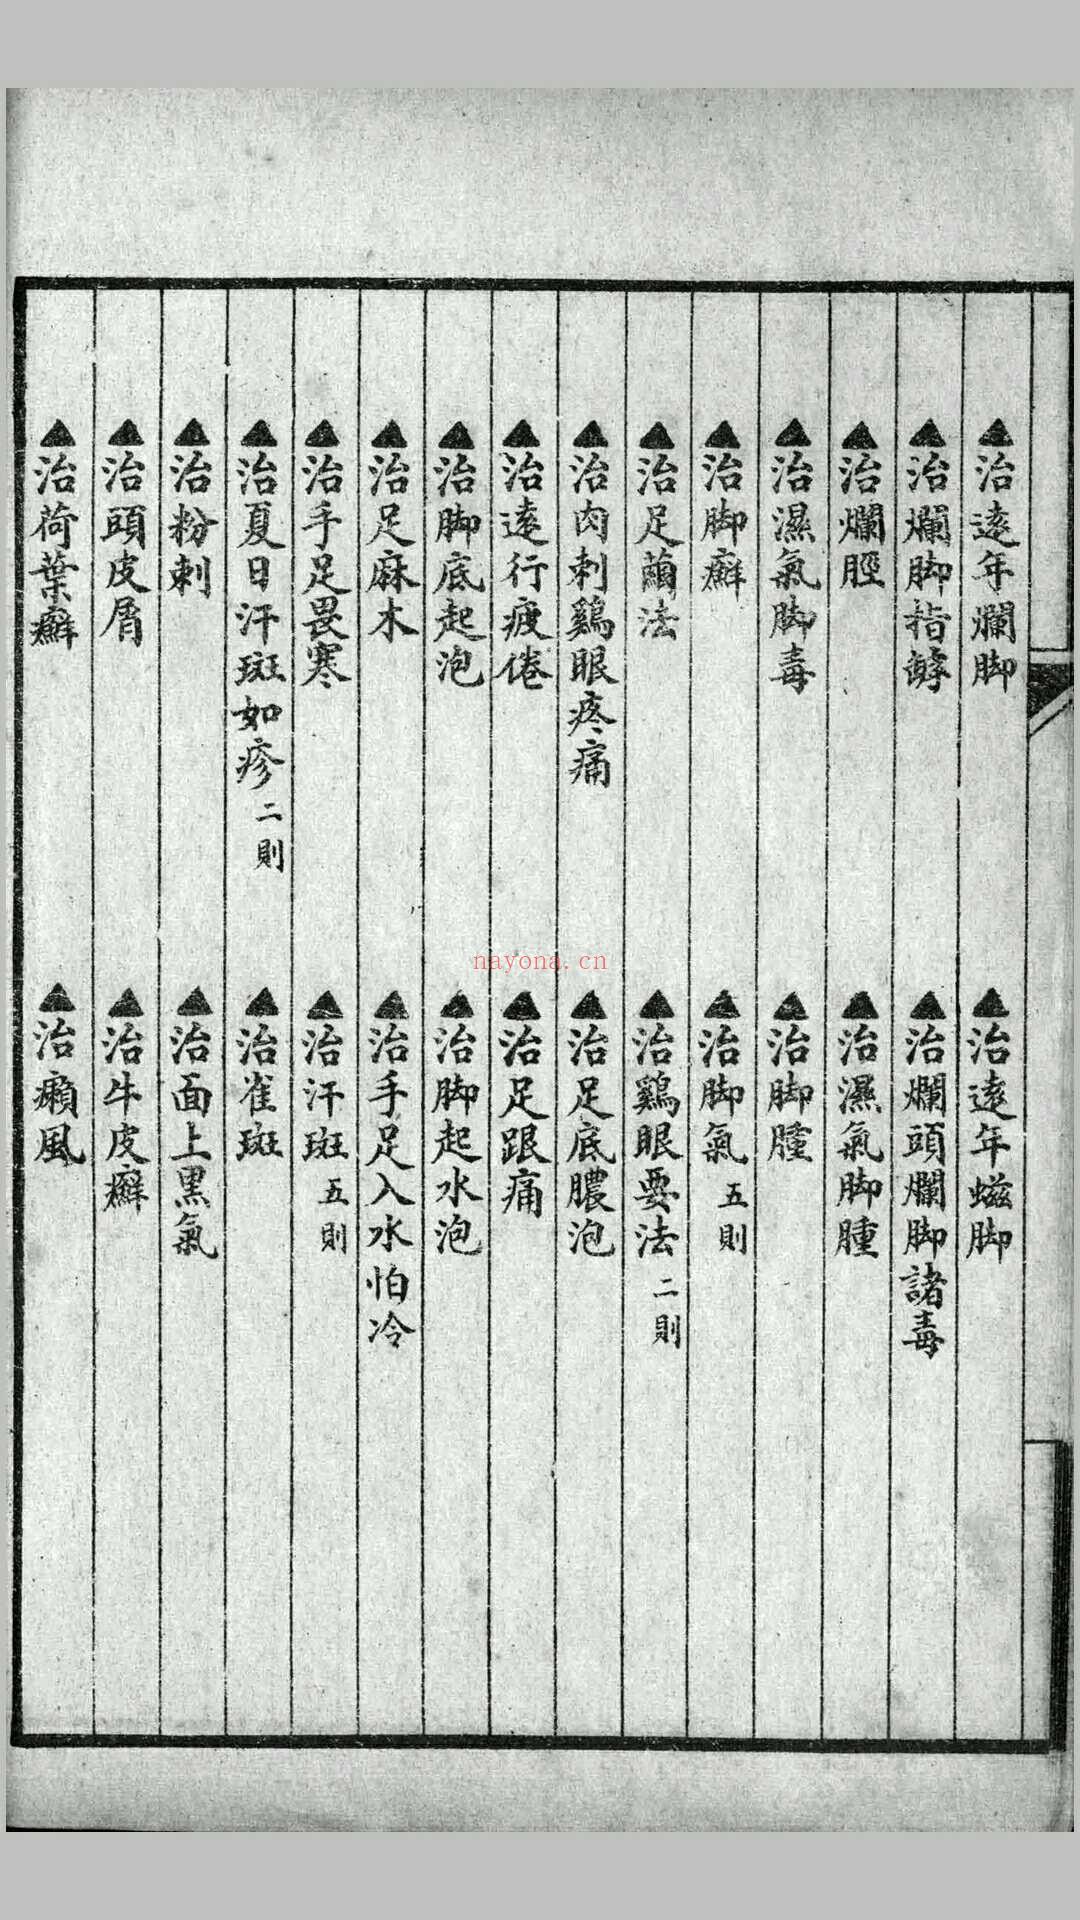 ▲治遠年爛脚　▲治遠年螆脚
▲治爛脚指罅　▲治爛頭爛脚諸毒
▲治爛脛　▲治濕氣脚腫
▲治濕氣脚毒　▲治脚腫
▲治脚癬　▲治脚氣 五則
▲治足繭法　▲治鷄眼要法 二則
▲治肉刺鷄眼疼痛　▲治足底膿泡
▲治遠行疲倦　▲治足跟痛
▲治脚底起泡　▲治脚起水泡
▲治足麻木　▲治手足入水怕冷
▲治手足畏寒　▲治汗斑 五則
▲治夏日汗斑如疹 二則　▲治雀斑
▲治粉刺　▲治面上黑氣
▲治頭皮屑　▲治牛皮癬
▲治荷葉癬　▲治癩風
nayona.cn